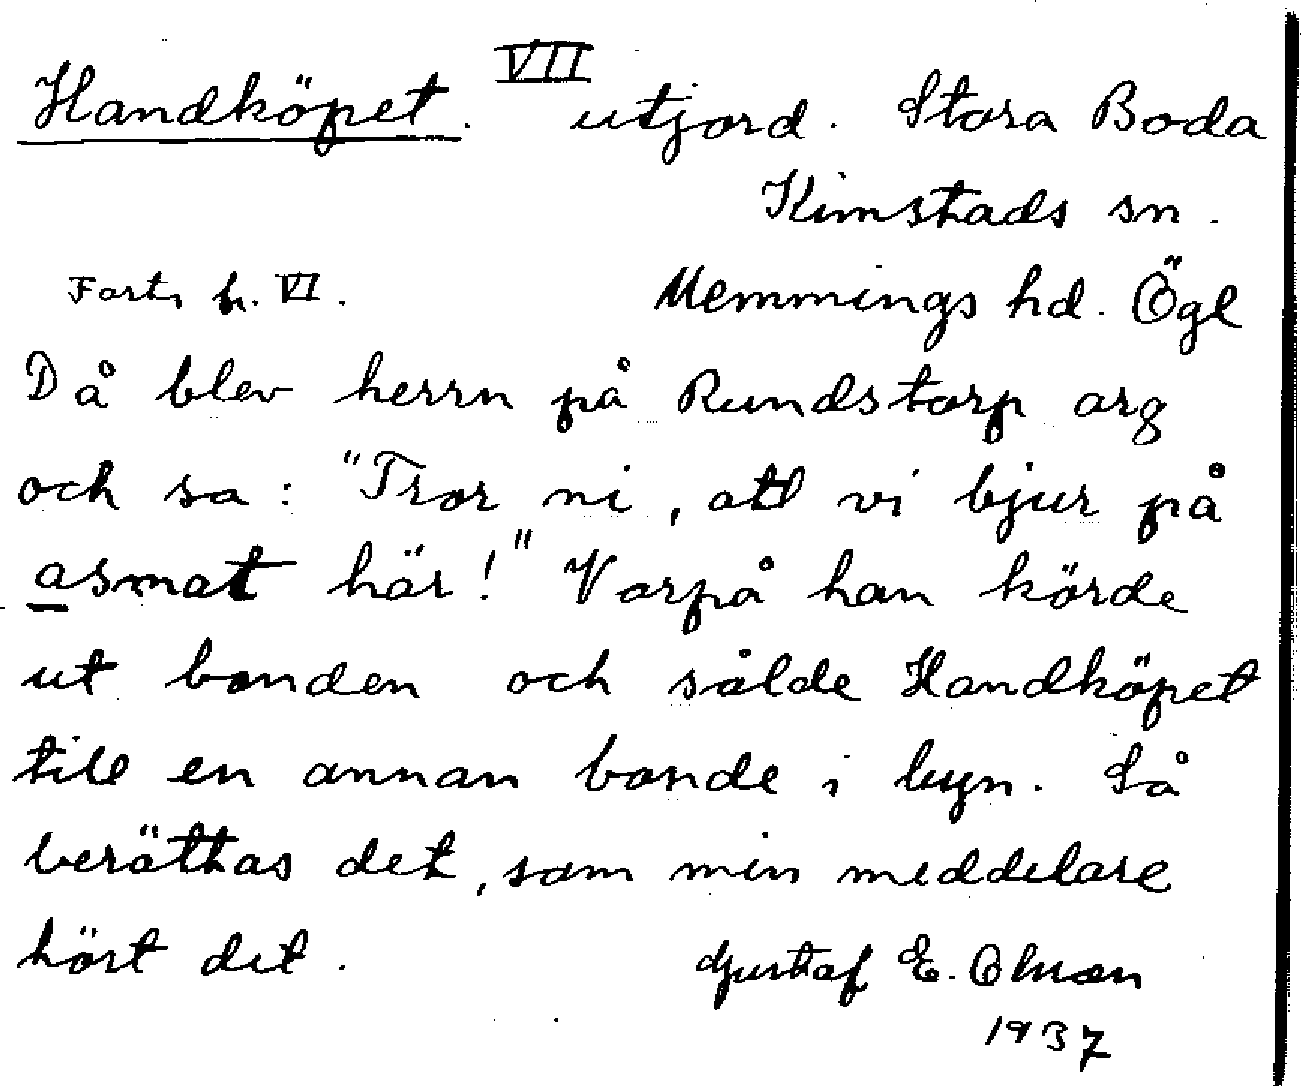 Handköpet. VII utjord. Stora Boda
Kimstads sn.
Forts fr. VI. Memmings hd. Ögl
Då blev herrn på Rundstorp arg
och sa: "Tror ni, att vi bjur på
asmat här!" Varpå han körde
ut bonden och sålde Handköpet
till en annan bonde i byn. Så
berättas det, som min meddelare
hört det. Gustaf E. Olsson
1937